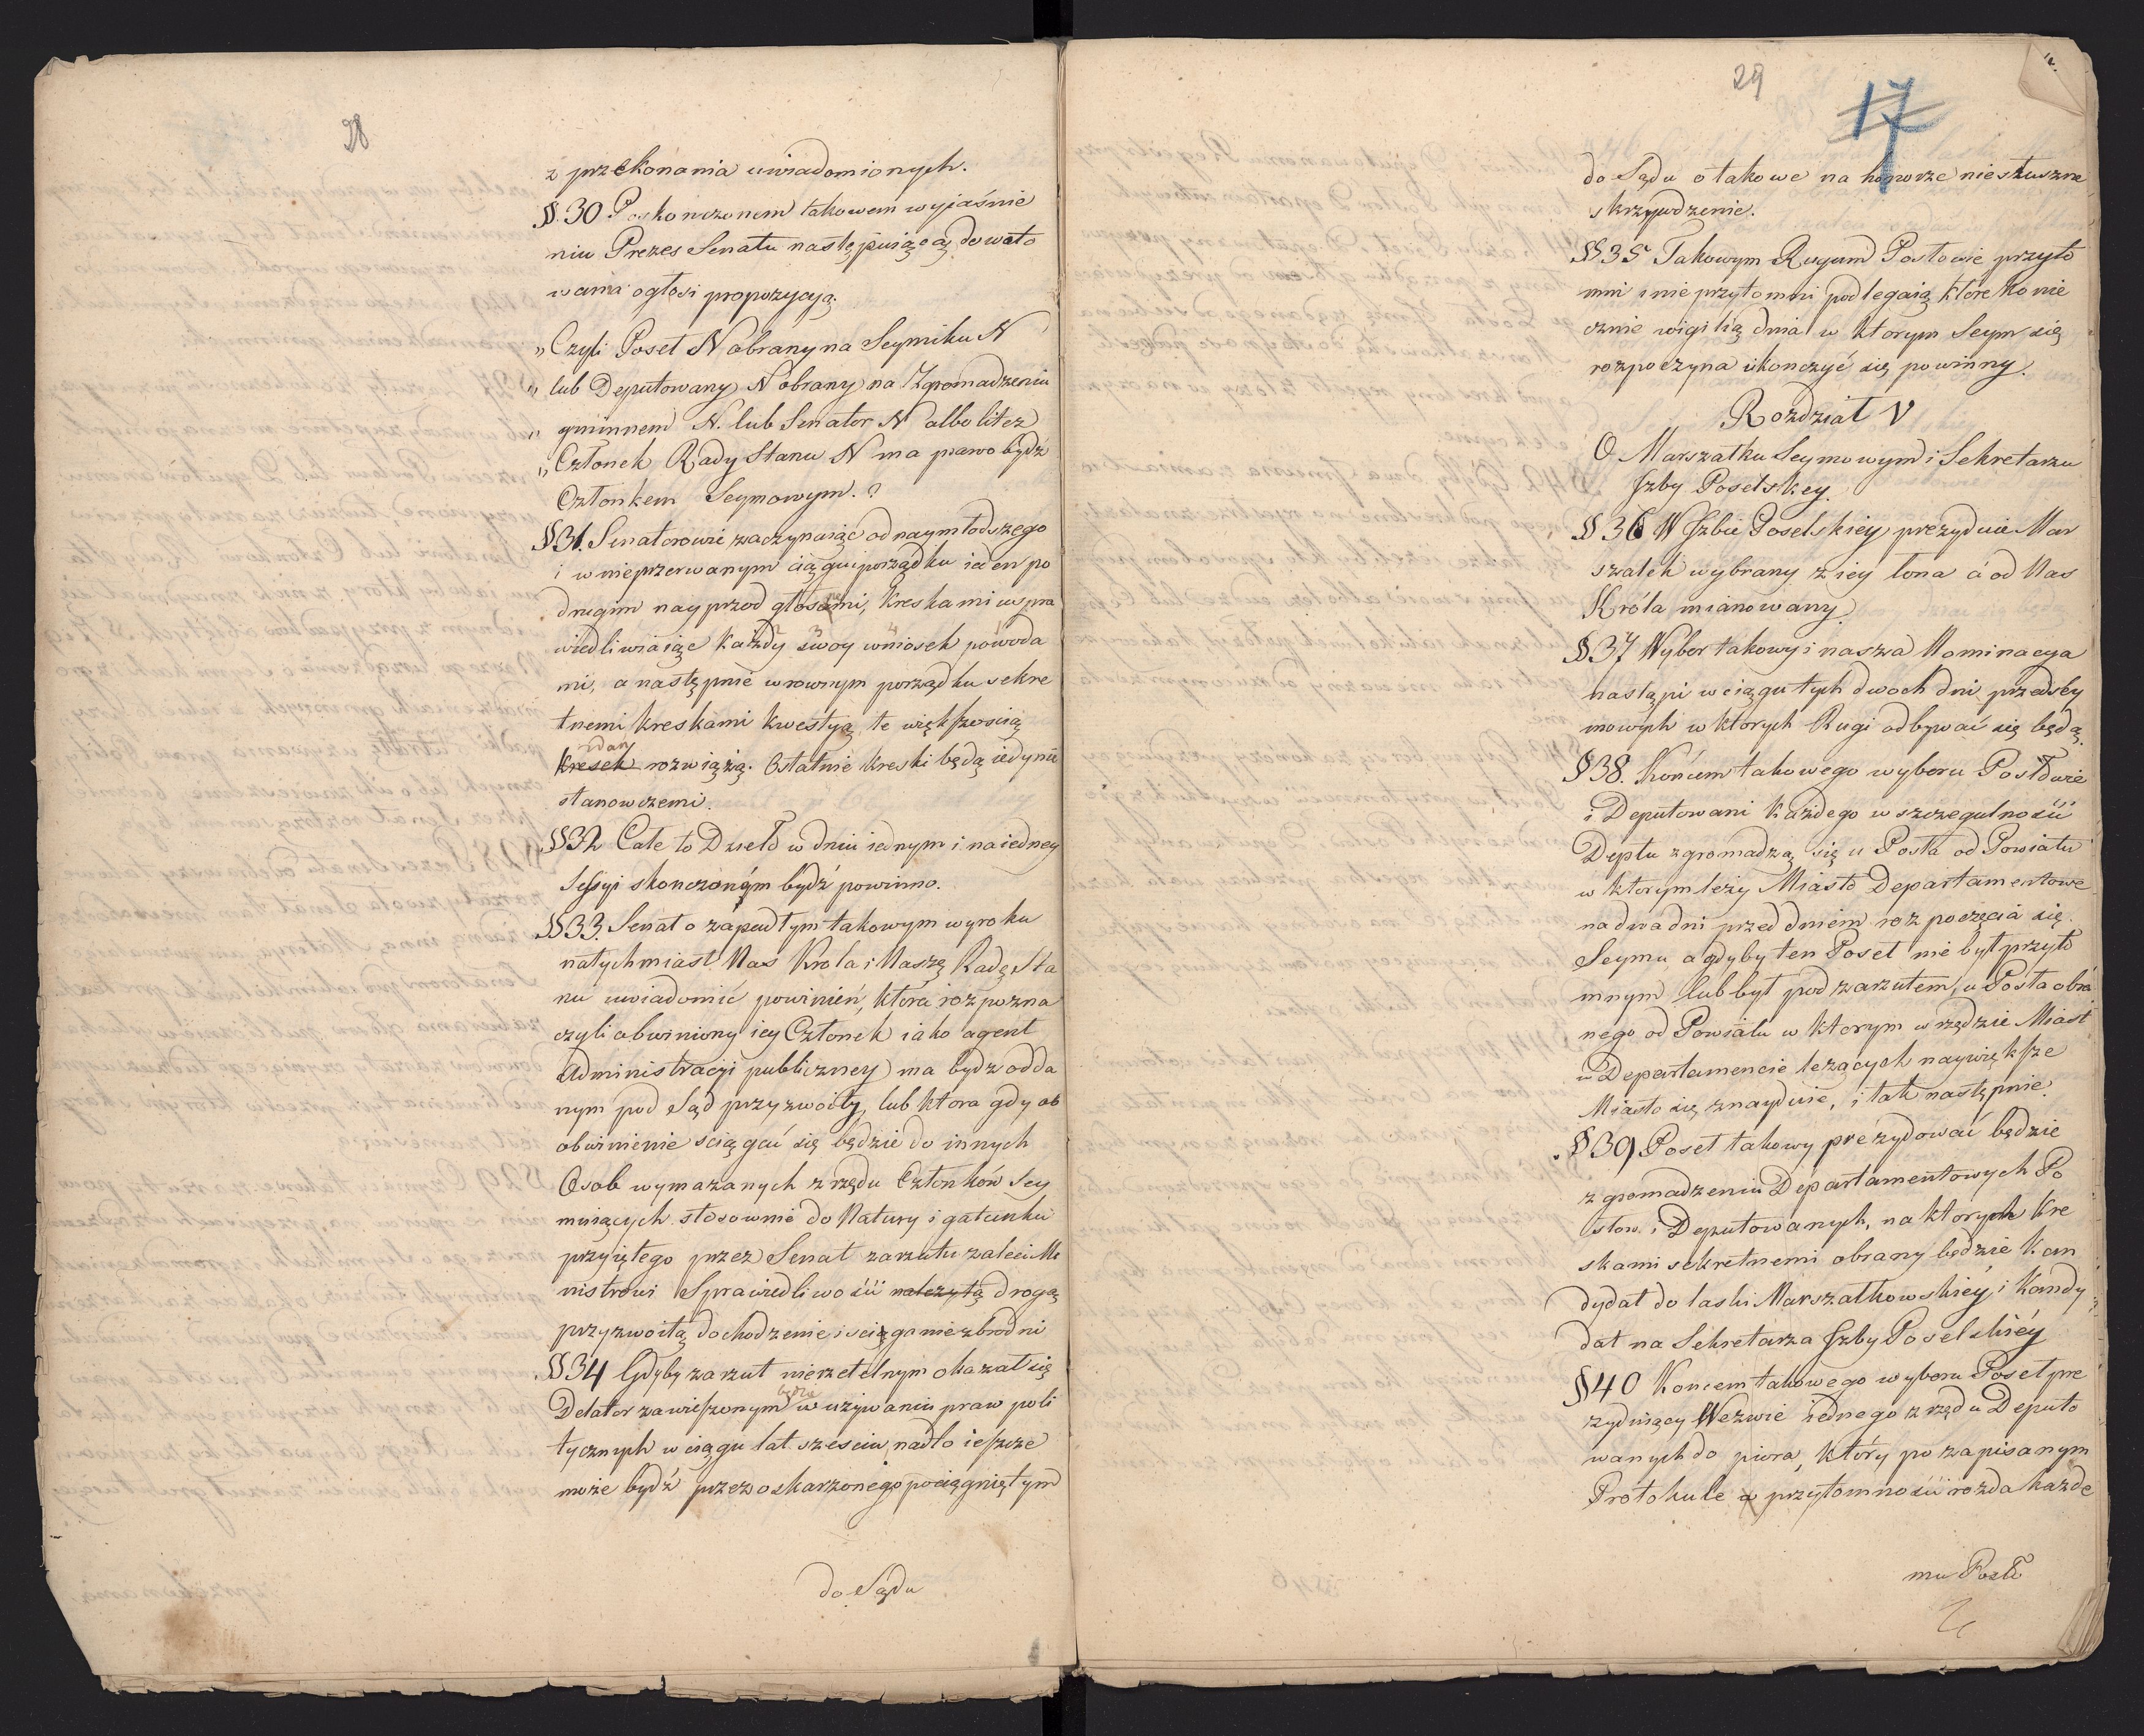 28
z przekonania uwiadomionych.
§ 30 Poskonczonem takowem wyjaśnie
niu Prezes Senatu następuiącą do woto
wania ogłosi propozycyą.
„ Czyli Poseł N obrany na Seymiku N
„ lub Deputowany N obrany na Zgromadzeniu
„ gminnem N. lub Senator N albo liteż
„ Członek Rady Stanu N ma prawo bydź
Członkem Seymowym. ?
§ 31. Senatorowie zaczynaiąc od naymłodszego
i w nieprzerwanym ciągu i porządku ieden po
drugim nayprzod głosami, kreskami uspra
wiedliwiaiąc każdy swoy wniosek powoda
mi, a następnie w rownym porządku sekre
tnemi kreskami kwestyą te większością
zdań
kresek rozwiążą. Ostatnie kreski będą iedynie
stanowczemi.
§ 32 Całe to Dzieło w dniu iednym i na iedney
Sessyi skonczonym bydź powinno.
§ 33. Senat o zapadłym takowym wyroku
natychmiast Nas Krola i Naszę Radę Sta
nu uwiadomić powinien, ktora rozpozna
czyli obwiniony iey Członek iako agent
Administracyi publiczney ma bydz odda
nym pod Sąd przyzwoity, lub ktora gdy ob
obwinienie ściągać się będzie do innych
Osob wymazanych z rzędu Członków Sey
muiących stosownie do Natury i gatunku
przyiętego przez Senat zarzutu zaleci Mi
nistrowi Sprawiedliwości należytą drogą
przyzwoitą dochodzenie i ściąganie zbrodni
§ 34 Gdyby zarzut nierzetelnym okazał się
będzie
Delator zawieszonym w używaniu praw poli
tycznych w ciągu lat sześciu, nadto ieszcze
może bydź przez oskarzonego pociągniętym
do Sądu
29
17
do Sądu o takowe na honorze niesłuszne
skrzywdzenie.
§ 35 Takowym Rugom Posłowie przyto
mni i nie przytomni podlegaią, które ko nie
cznie wigilią dnia w ktorym Seym się
rozpoczyna ukonczyć się powinny.
Rozdział V
O Marszałku Seymowym i Sekretarzu
Jzby Poselskey.
§ 36 W Jzbie Poselskiey prezyduie Mar
szałek wybrany z iey łona á od Nas
Króla mianowany.
§ 37 Wybor takowy i nasza Nominacya
nastąpi w ciągu tych dwoch dni przedsey
mowych w ktorych Rugi odbywać się będą.
§ 38. Końcem takowego wyboru Posłowie
i Deputowani każdego w szczegulności
Deptu zgromadzą się u Posła od Powiatu
w ktorym leży Miasto Departamentowe
na dwa dni przed dniem rozpoczęcia się
Seymu a gdyby ten Poseł nie był przyto
mnym lub był pod zarzutem, u Posła obra
nego od Powiatu w ktorym w rzędzie Miast
w Departamencie leżących naywiększe
Miasto się znayduie, i tak następnie.
§ 39 Poseł takowy prezydować będzie
zgromadzeniu Departamentowych Po
słow i Deputowanych, na ktorych kre
skami sekretnemi obrany będzie kan
dydat do laski Marszałkowskiéy i Kandy
dat na Sekretarza Jzby Poselskiéy
§ 40 Koncem takowego wyboru Poseł pre
zyduiący Wezwie iednego z rzędu Deputo
wanych do piora, który po zapisanym
Protokule a przytomności rozda każde
mu Posło